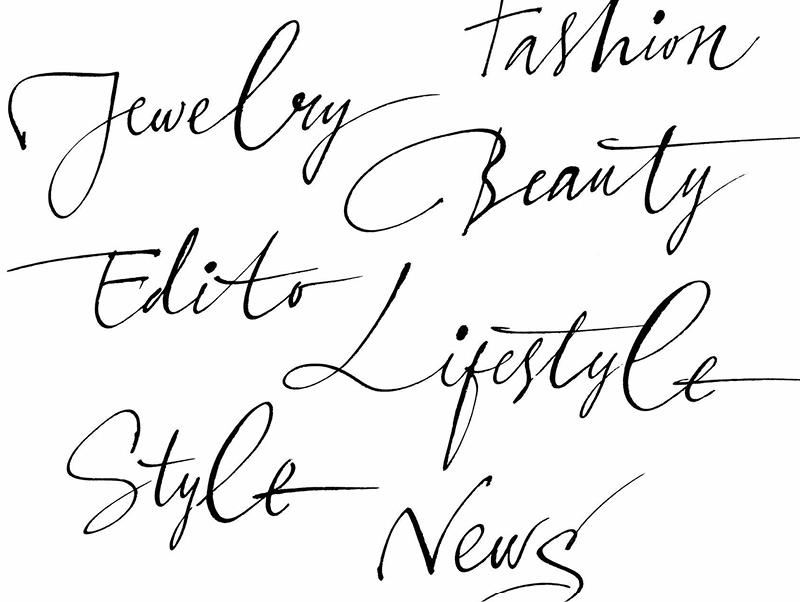 Fashion
Jewelry
Beauty
Edito
Lifestyle
Style
News